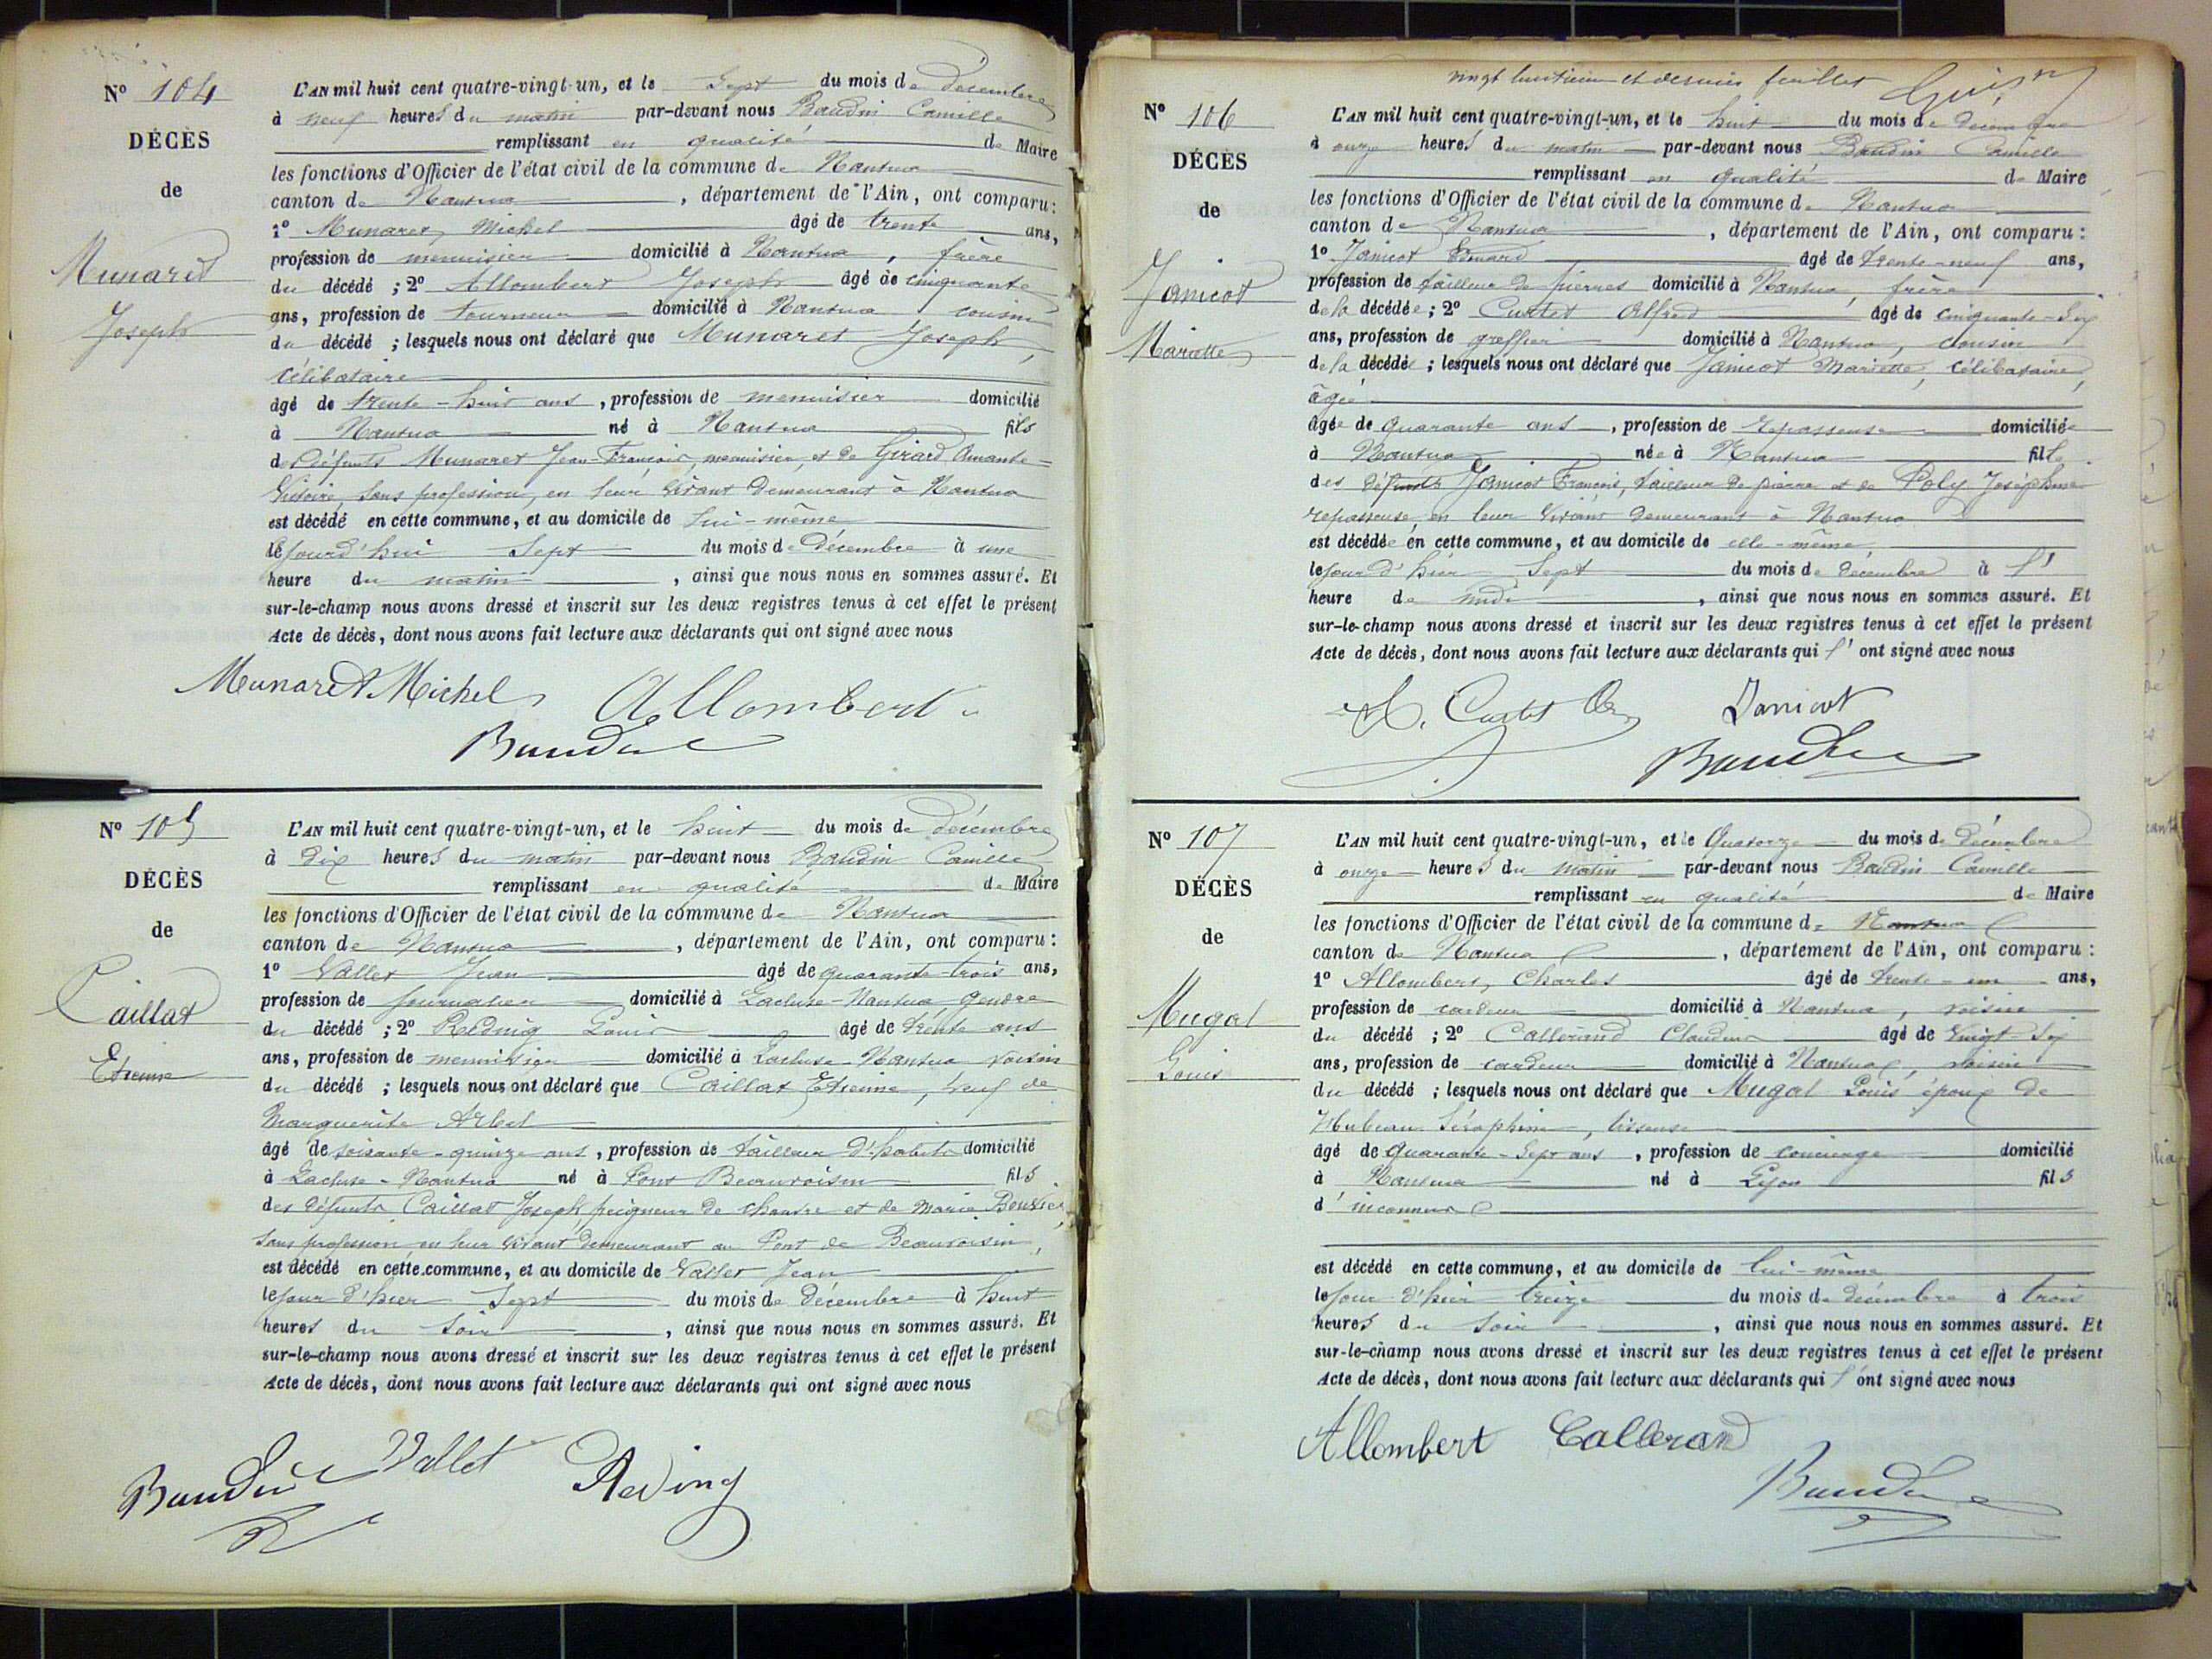 N° 104
DÉCÈS
de
Munaret
Joseph
L'AN mil huit cent quatre-vingt-un, et le Sept du mois de Décembre
à neuf heures du matin par-devant nous Baudin Camille
remplissant en qualité de Maire
les fonctions d'Officier de l'état civil de la commune de Nantua
canton de Nantua, département de l'Ain, ont comparu:
1° Munaret Michel âgé de trente ans,
profession de menuisier domicilié à Nantua, frère
du décédé ; 2° Allombert Joseph âgé de cinquante
ans, profession de tourneur domicilié à Nantua cousin
du décédé ; lesquels nous ont déclaré que Munaret Joseph,
célibataire
âgé de trente-huit ans, profession de menuisier domicilié
à Nantua né à Nantua fils
de défunts Munaret Jean-François, menuisier, et de Girard Amante-
Victoire, sans profession, en leur vivant demeurant à Nantua
est décédé en cette commune, et au domicile de lui-même
le jourd'hui Sept du mois de Décembre à une
heure du matin, ainsi que nous nous en sommes assuré. Et
sur-le-champ nous avons dressé et inscrit sur les deux registres tenus à cet effet le présent
Acte de décès, dont nous avons fait lecture aux déclarants qui ont signé avec nous
Munaret Michel Allombert
Baudin
N° 105
DÉCÈS
de
Caillat
Etienne
L'AN mil huit cent quatre-vingt-un, et le huit du mois de Décembre
à dix heures du matin par-devant nous Baudin Camille
remplissant en qualité de Maire
les fonctions d'Officier de l'état civil de la commune de Nantua
canton de Nantua, département de l'Ain, ont comparu:
1° Vallet Jean âgé de quarante-trois ans,
profession de journalier domicilié à Lacluse-Nantua gendre
du décédé ; 2° Reding Louis âgé de trente ans
ans, profession de menuisier domicilié à Lacluse-Nantua voisin
du décédé ; lesquels nous ont déclaré que Caillat Etienne, veuf de
Marguerite Arbel
âgé de soixante-quinze ans, profession de tailleur d'habits domicilié
à Lacluse-Nantua né à Pont Beauvoisin fils
des défunts Caillat Joseph, peigneur de chanvre et de Marie
sans profession en leur vivant demeurant au Pont de Beauvoisin,
est décédé en cette commune, et au domicile de Vallet Jean
le jour d'hier Sept du mois de Décembre à huit
heures du soir, ainsi que nous nous en sommes assuré. Et
sur-le-champ nous avons dressé et inscrit sur les deux registres tenus à cet effet le présent
Acte de décès, dont nous avons fait lecture aux déclarants qui ont signé avec nous
Baudin Vallet Reding
vingt huitième et dernier feuillet
N° 106
DÉCÈS
de
Janicot
Mariette
L'AN mil huit cent quatre-vingt-un, et le huit du mois de Décembre
à onze heures du matin par-devant nous Baudin Camille
remplissant en qualité de Maire
les fonctions d'Officier de l'état civil de la commune de Nantua
canton de Nantua, département de l'Ain, ont comparu:
1° Janicot Edouard âgé de trente-neuf ans,
profession de tailleur de pierres domicilié à Nantua, frère
de la décédée ; 2° Curtet Alfred âgé de cinquante-six
ans, profession de greffier domicilié à Nantua, cousin
de la décédée ; lesquels nous ont déclaré que Janicot Mariette, célibataire,
âgée
âgée de quarante ans, profession de repasseuse domiciliée
à Nantua née à Nantua fille
des défunts Janicot François, tailleur de pierre et de Poly Joséphine
repasseuse, en leur vivant demeurant à Nantua
est décédée en cette commune, et au domicile de elle-même,
le jour d'hier Sept du mois de Décembre à l'
heure de midi, ainsi que nous nous en sommes assuré. Et
sur-le-champ nous avons dressé et inscrit sur les deux registres tenus à cet effet le présent
Acte de décès, dont nous avons fait lecture aux déclarants qui l'ont signé avec nous
A. Curtet Janicot
Baudin
N° 107
DÉCÈS
de
Mugat
Louis
L'AN mil huit cent quatre-vingt-un, et le Quatorze du mois de Décembre
à onze heures du matin par-devant nous Baudin Camille
remplissant en qualité de Maire
les fonctions d'Officier de l'état civil de la commune de Nantua
canton de Nantua, département de l'Ain, ont comparu:
1° Allombert, Charles âgé de trente-un ans,
profession de cardeur domicilié à Nantua, voisin
du décédé ; 2° Callerand Claudius âgé de vingt-six
ans, profession de cardeur domicilié à Nantua, voisin
du décédé ; lesquels nous ont déclaré que Mugat Louis époux de
Séraphine, tisseuse
âgé de quarante-sept ans, profession de concierge domicilié
à Nantua né à Lyon fils
d'inconnus
est décédé en cette commune, et au domicile de lui-même
le jour d'hier treize du mois de décembre à trois
heures du soir, ainsi que nous nous en sommes assuré. Et
sur-le-champ nous avons dressé et inscrit sur les deux registres tenus à cet effet le présent
Acte de décès, dont nous avons fait lecture aux déclarants qui l'ont signé avec nous
Allombert Callerand
Baudin